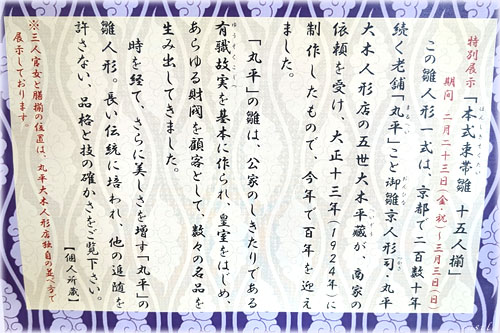 特別展示「本式束帯雛 十五人揃」
期間 二月二十三日(金・祝)~三月三日(日)
この雛人形一式は、京都で二百数十年
続く老舗「丸平」こと御雛京人形司・丸平
大木人形店の五世大木平藏が、商家の
依頼を受け、大正十三年(1924年)に
制作したもので、今年で百年を迎え
ました。
「丸平」の雛は、公家のしきたりである
有職故実を基本に作られ、皇室をはじめ、
あらゆる財閥を顧客として、数々の名品を
生み出してきました。
時を経て、さらに美しさを増す「丸平」の
雛人形。長い伝統に培われ、他の追随を
許さない、品格と技の確かさをご覧下さい。
【個人所蔵】
※三人官女と膳揃の位置は、丸平大木人形店独自の並べ方で
展示しております。